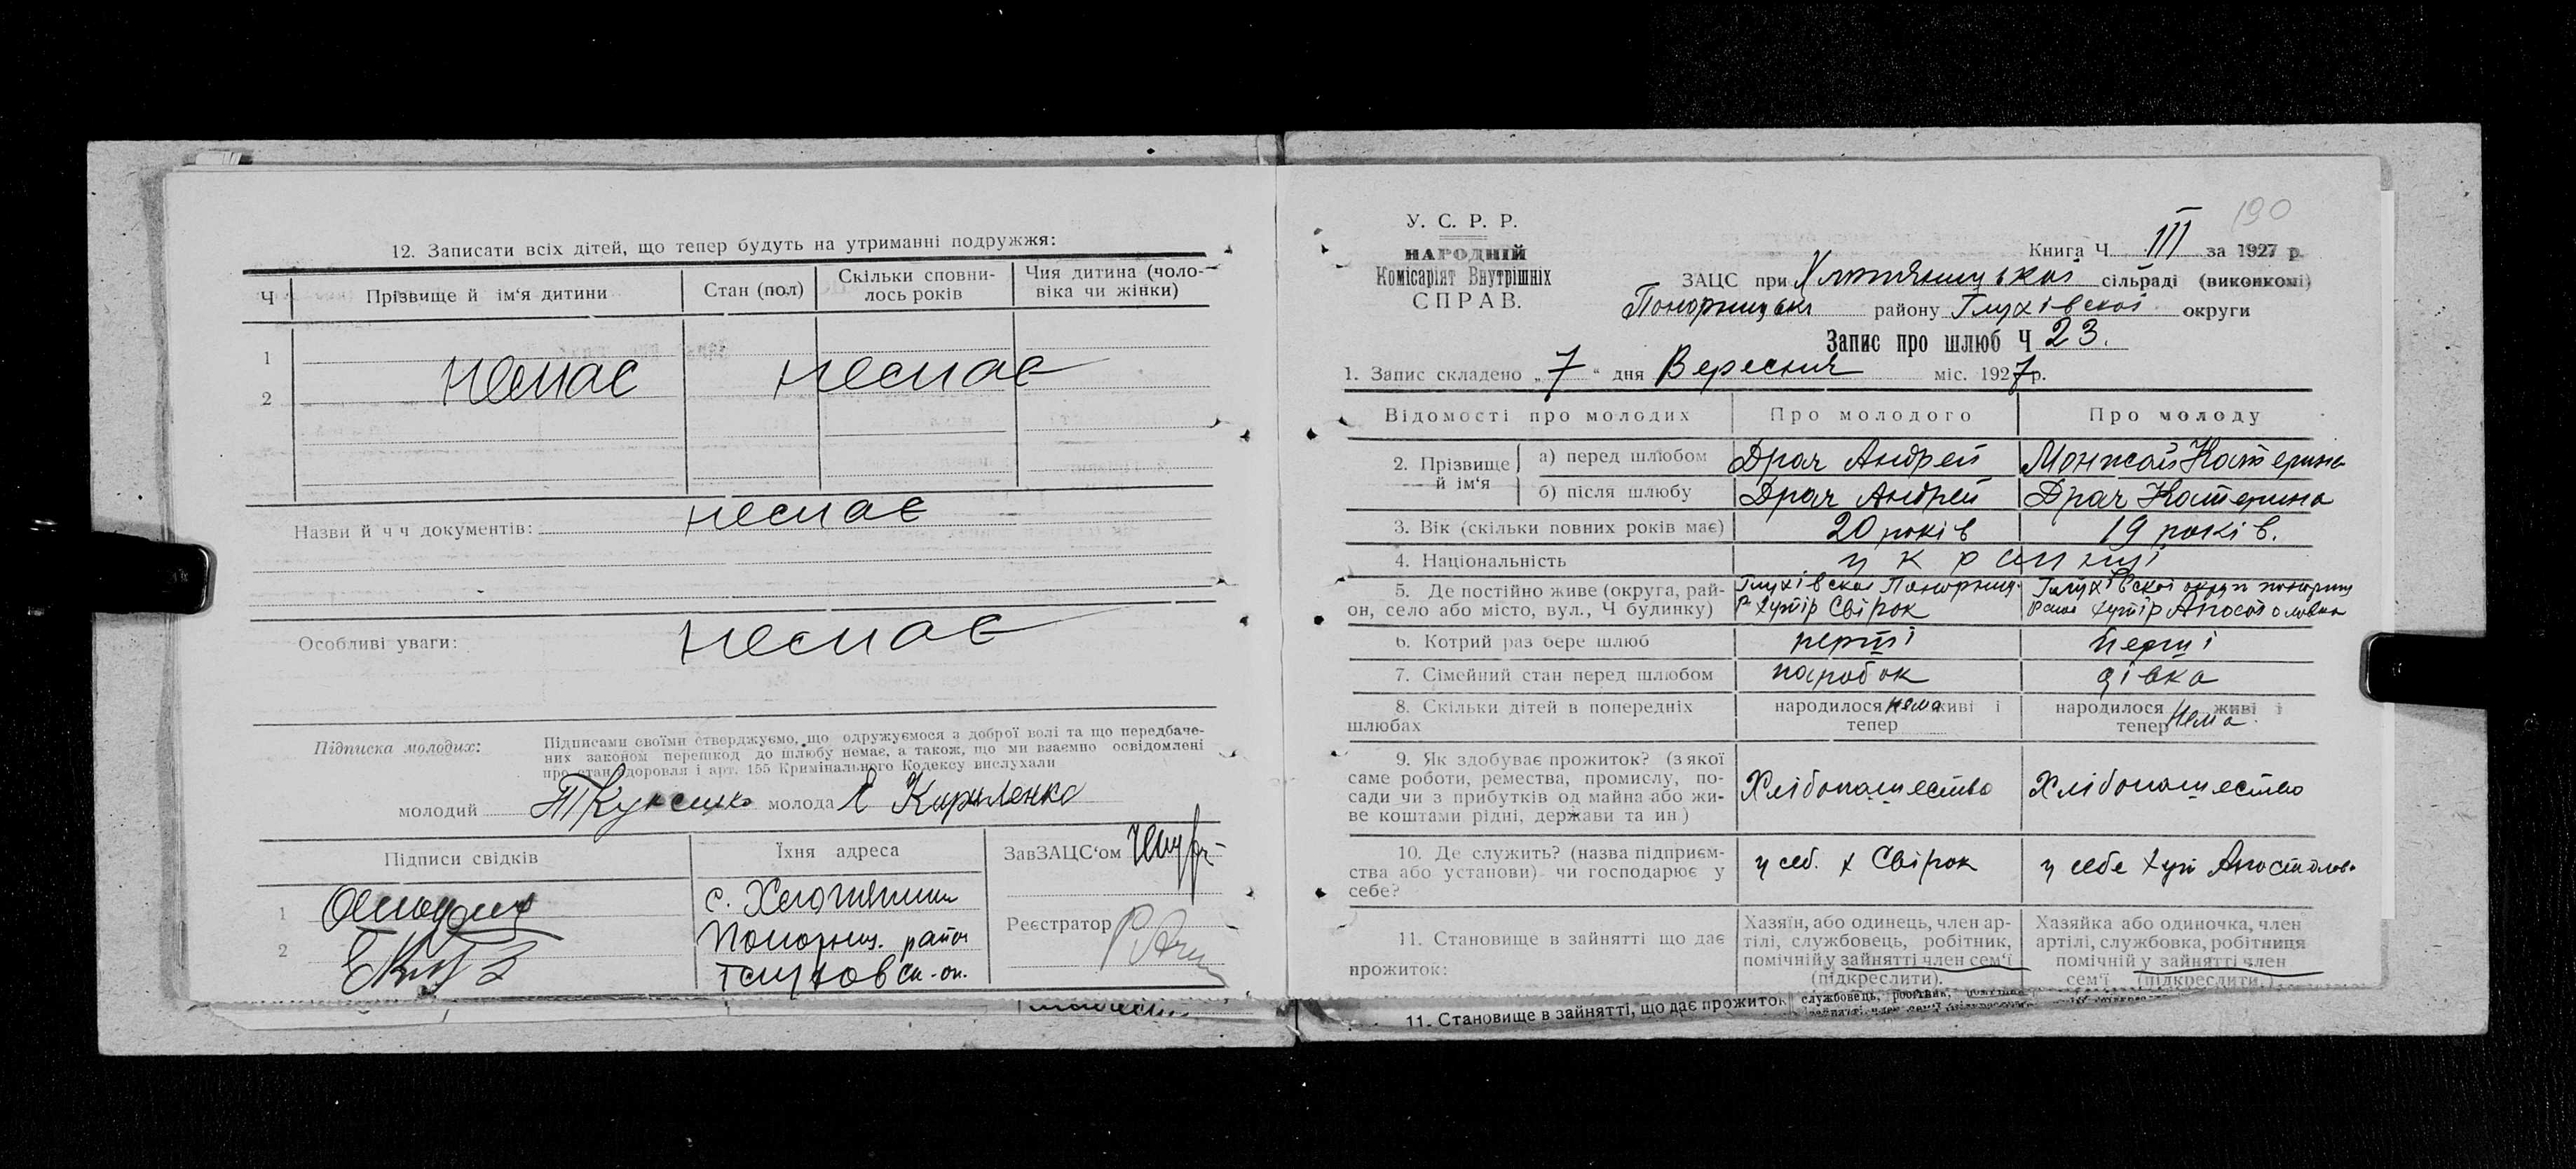 12. Записати всіх дітей, що тепер будуть на утриманні подружжя:
Ч
Прізвище й ім'я дитини
Стан (пол)
Скільки сповни-
лось років
Чия дитина (чоло-
віка чи жінки)
1
2
немає немає
Назви й ч ч документів: немає
Особливі уваги: немає
Підписка молодих:
Підписами своїми стверджуємо, що одружуємося з доброї волі та що передбаче-
них законом перешкод до шлюбу немає, а також, що ми взаємно освідомлені
про стан здоровля і арт. 155 Кримінального Кодексу вислухали
молодий молода Кириленко
Підписи свідків
Їхня адреса
ЗавЗАЦС'ом
1
2
Реєстратор
Понорниц. район
190
У. С. Р. Р.
НАРОДНІЙ
Комісаріят Внутрішніх
СПРАВ.
Книга Ч III за 1927 р.
ЗАЦС при сільраді (виконкомі)
району Глухівскої округи
Запис про шлюб Ч 23.
1. Запис складено „7“ дня Вересня міс. 1927р.
Відомості про молодих
Про молодого
Про молоду
2. Прізвище
й ім'я
а) перед шлюбом
Драч Андрей
Монжай Катерина
б) після шлюбу
Драч Андрей
Драч Катерина
3. Вік (скільки повних років має)
20 років
19 років.
4. Національність
українці
5. Де постійно живе (округа, рай-
он, село або місто, вул., Ч будинку)
Глухівскої Понорниц.
р хутір Свірок
Глухівскої округи понорниц
хутір Апостоловка
6. Котрий раз бере шлюб
перші
перші
7. Сімейний стан перед шлюбом
паробок
дівка
8. Скільки дітей в попередніх
шлюбах
народилося нема живі і
тепер
народилося живі і
тепер нема.
9. Як здобуває прожиток? (з якої
саме роботи, ремества, промислу, по-
сади чи з прибутків од майна або жи-
ве коштами рідні, держави та ин)
Хлібопашество
Хлібопашество
10. Де служить? (назва підприєм-
ства або установи) чи господарює у
себе?
у себ. х Свірок
у себе хут Апостолов
11. Становище в зайнятті що дає
прожиток:
Хазяїн, або одинець, член ар-
тілі, службовець, робітник,
помічний у зайнятті член сем'ї
(підкреслити).
Хазяйка або одиночка, член
артілі, службовка, робітниця
помічній у зайнятті член
сем'ї (підкреслити.)
11. Становище в зайнятті, що дає прожиток
службовець, робітник,